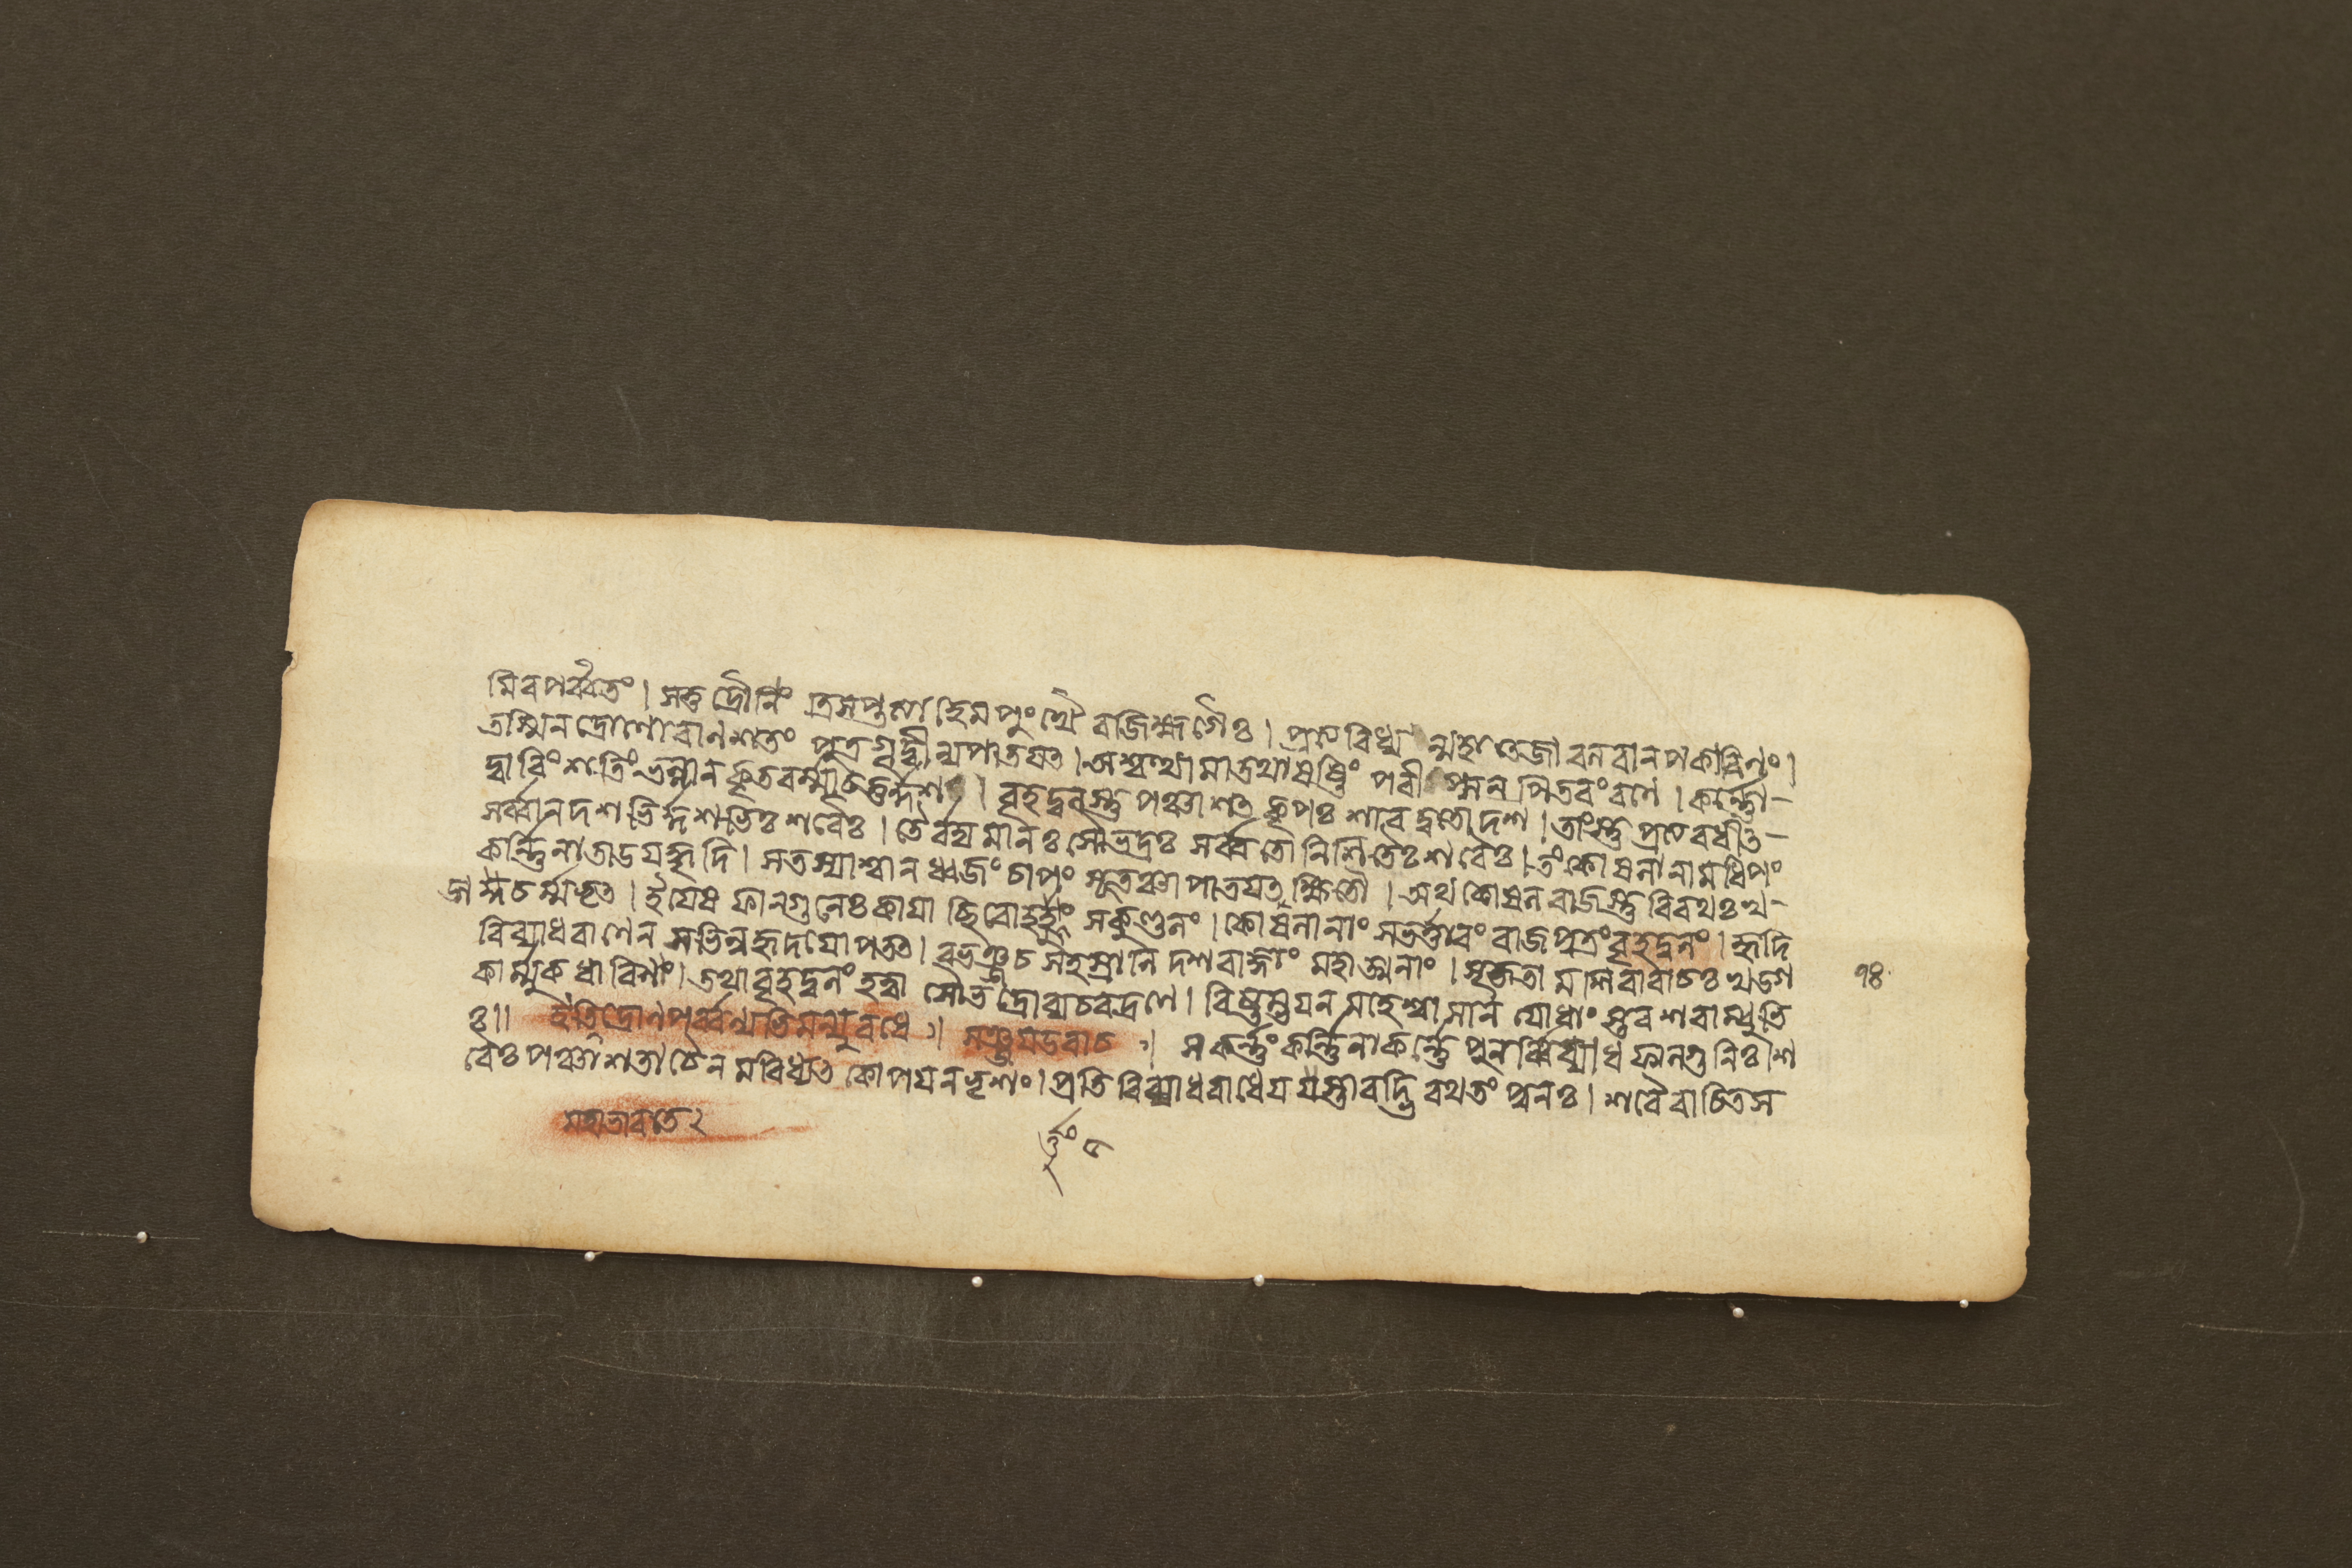 মিব পর্ব্বতং । সতু দ্রৌণিং ত্রিসপ্তত্যা হেমপুংখৈ রজিহ্মগৈঃ । প্রত্যবিধ্য ন্মহাতেজা বলবানপকারিণং ।
তস্মিন দ্রোণো বাণশতং পুত্রগৃদ্ধীন্যপাতয়ৎ । অশ্বত্থামা তথাষষ্টিং পরীপ্সন পিতরং রণে । কর্ণ্ণো-
দ্বাবিংশতিং ভল্লান কৃতবর্ম্মা চতুর্দ্দশ । বৃহদ্বলস্তু পঞ্চাশৎ কৃপঃ শারদ্বতো দশ । তাংস্তু প্রত্যবধীৎ-
সর্ব্বান দশভির্দ্দশভিঃ শরৈঃ । তৈরর্দ্যমানঃ সৌভদ্রঃ সর্ব্বতো নিশিতৈঃ শরৈঃ । তং কোষলানামধিপঃ
কর্ণ্ণিনাতাডয়দ্ধৃদি । স তস্যাশ্বান ধ্বজং চাপং সূতঞ্চাপাতয়ৎ ক্ষিতৌ । অথ কোষলরাজস্তু বিরথঃ খ-
ড্গচর্ম্মধৃৎ । ইয়েষ ফাল্গুনেঃ কায়াচ্ছিরোহর্ত্তুং সকুণ্ডলং । কোষলানাং সভর্ত্তারং রাজপুত্রং বৃহদ্বলং । হৃদি
বিব্যাধ বাণেন সভিন্নহৃদয়োপতৎ । বভঞ্জ চ সহস্রাণি দশ রাজ্ঞাং মহাত্মনাং । সৃজতা মশিবাবাচঃ খড্গ
কার্ম্মুকধারিণাং । তথা বৃহদ্বলং হত্বা সৌভদ্রো ব্যচরদ্রণে । বিষ্টম্ভয়ন মাহেষ্বাসান যোধাংস্তব শরাম্বুভি
ঃ॥ ইতি দ্রোণপর্ব্বণ্যভিমন্যুবধে । সঞ্জয়উবাচ । স কর্ণ্ণং কর্ণ্ণিনা কর্ণ্ণে পুনর্ব্বিব্যাধ ফাল্গুনিঃ শ
রৈঃ পঞ্চাশতা চৈনমবিধ্যৎ কোপয়ন ভৃশং । প্রতিবিব্যাধ রাধেয় স্তাবদ্ভি রথ তং পুনঃ । শরৈরাচিতস
১৪
মহাভারতে ২
র্ত্তুং ৫